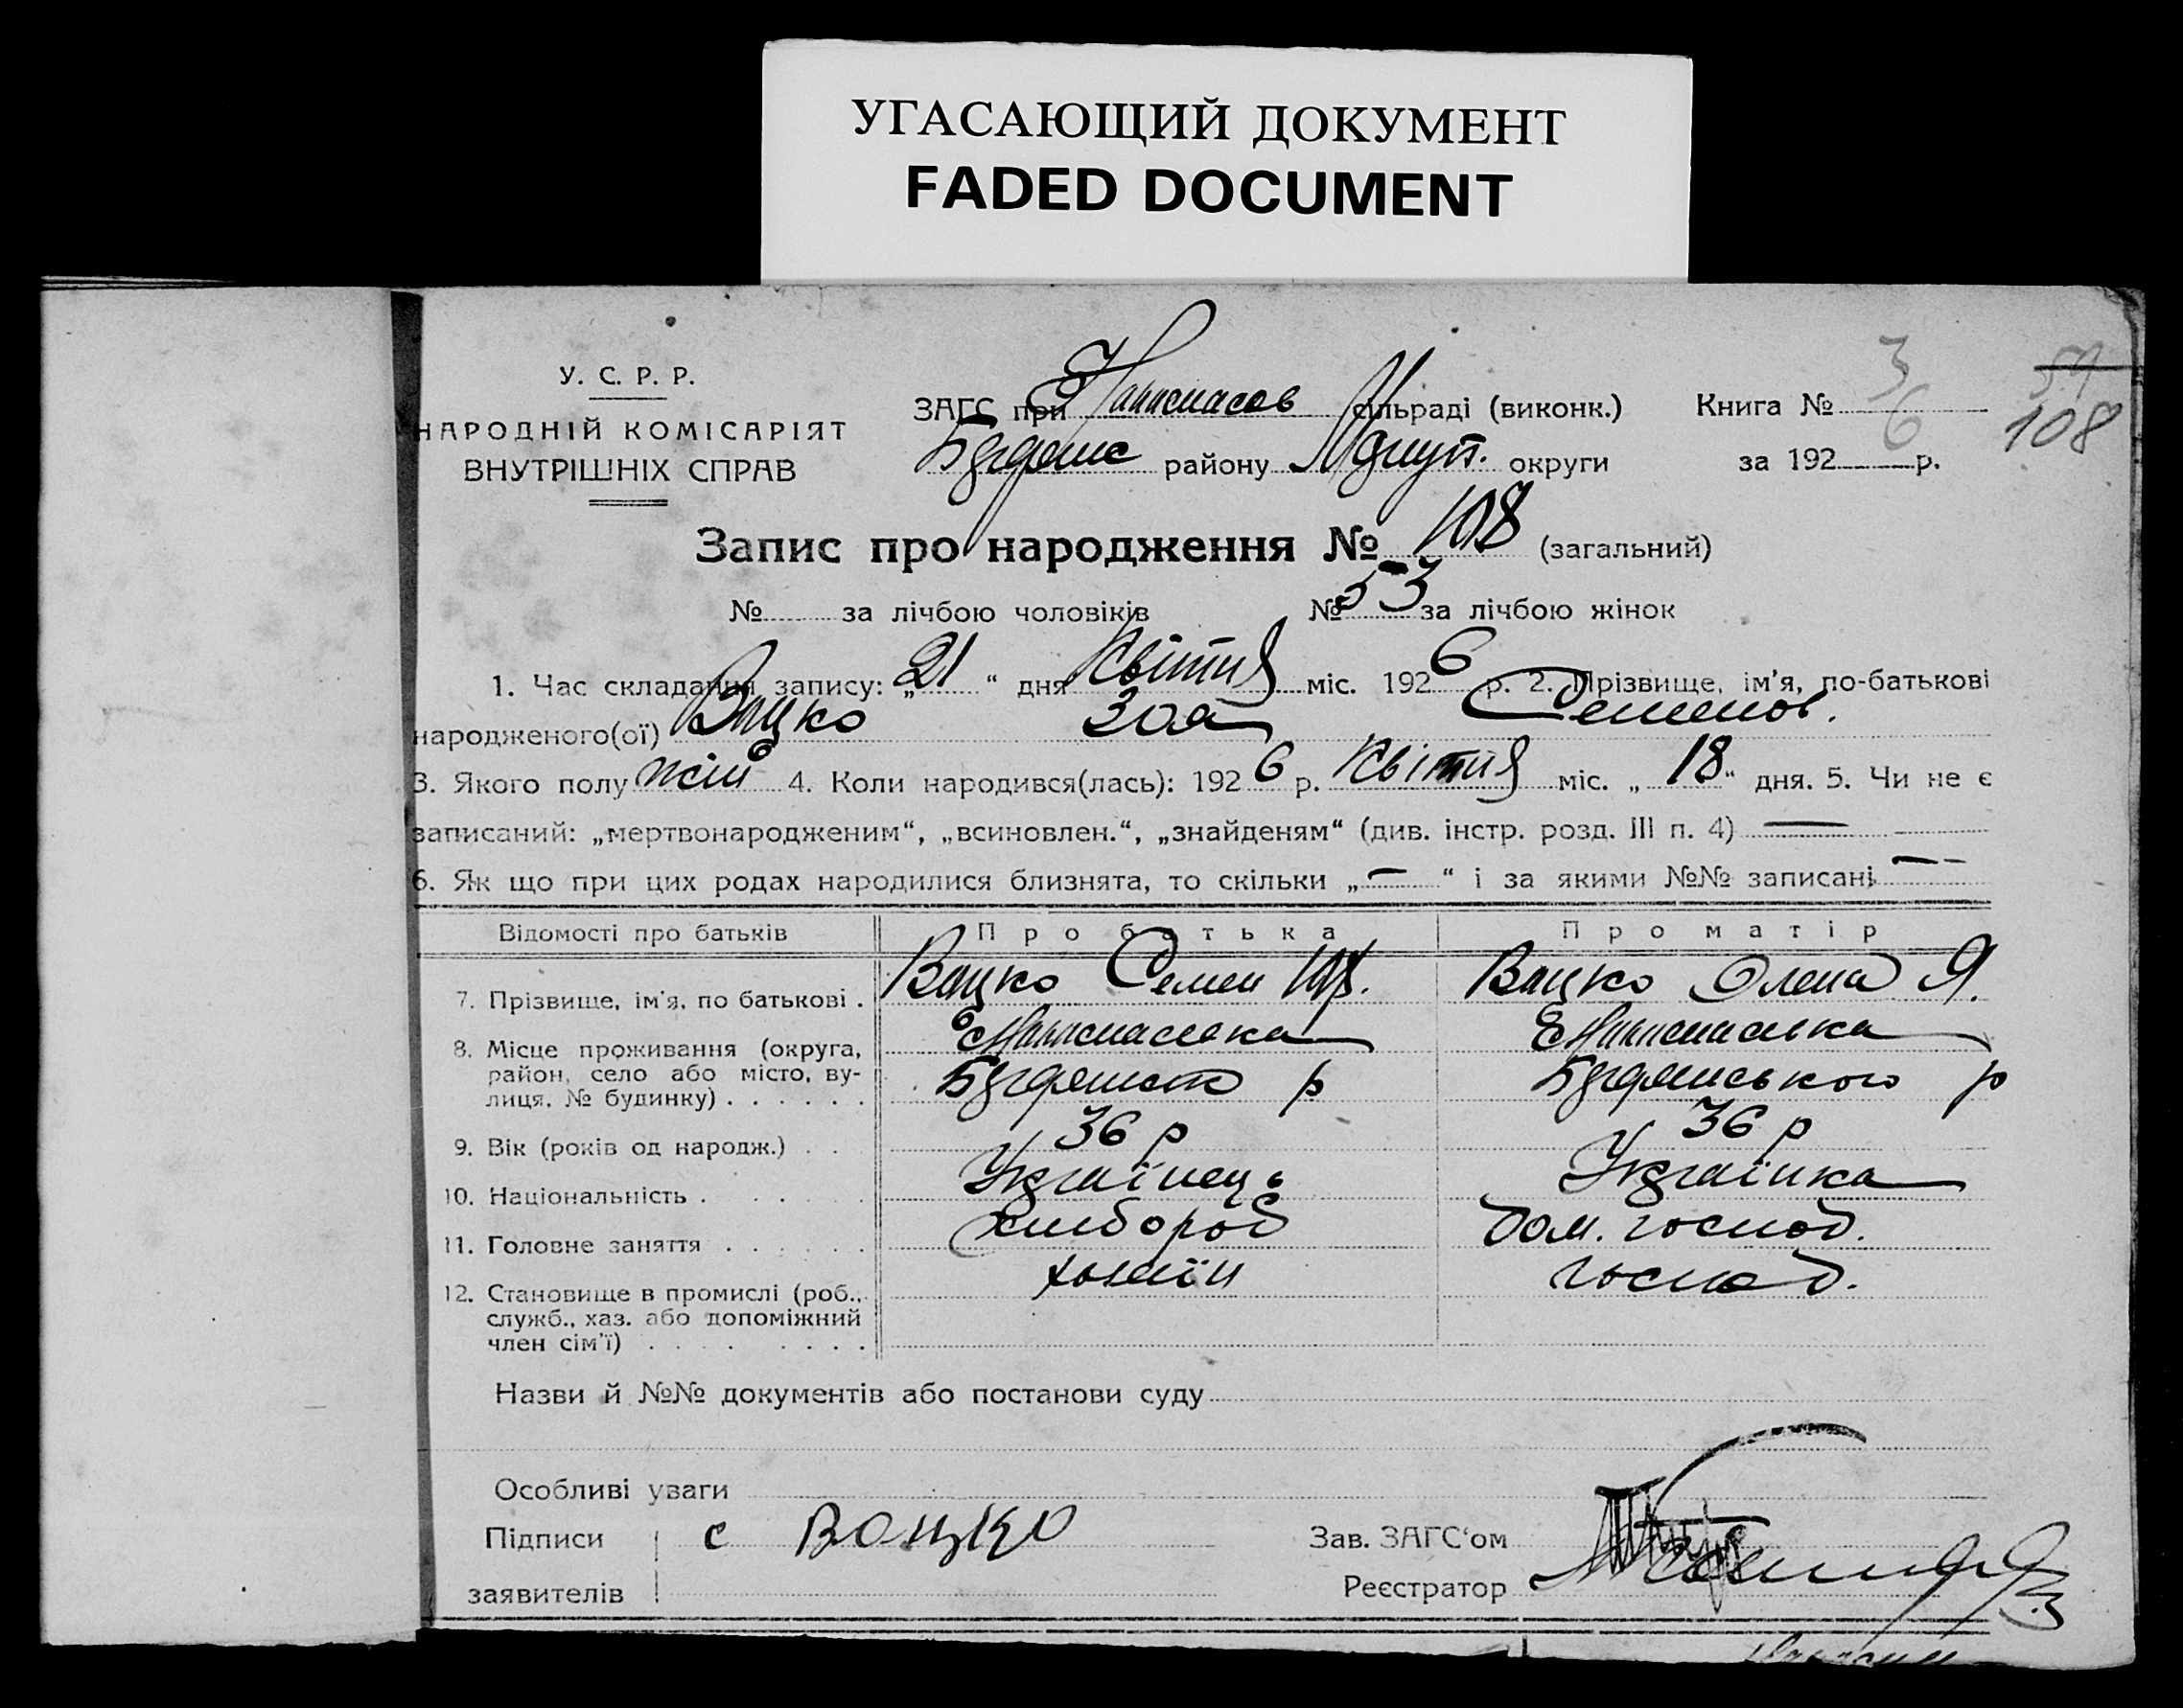 УГАСАЮЩИЙ ДОКУМЕНТ
FADED DOCUMENT
У. С. Р. Р.
НАРОДНІЙ КОМІСАРІЯТ
ВНУТРІШНІХ СПРАВ
ЗАГС при сільраді (виконк.)
району округи
Книга № 3
за 1926 р.
108
Запис про народження № 108 (загальний)
№ за лічбою чоловіків № 53 за лічбою жінок
1. Час складання запису: „21“ дня Квітня міс. 1926 р. 2. Прізвище, ім'я, по-батькові
народженого(ої) Вацко Зоя Семенов.
3. Якого полу жін 4. Коли народився(лась): 1926 р. Квітня міс. „18“ дня. 5. Чи не є
записаний: „мертвонародженим“, „всиновлен.“, „знайденям“ (див. інстр. розд. III п. 4) —
6. Як що при цих родах народилися близнята, то скільки „—“ і за якими №№ записані — —
Відомості про батьків Про батька Про матір
7. Прізвище, ім'я, по батькові . Вацко Семен Юх. Вацко Олена Я.
8. Місце проживання (округа,
район, село або місто, ву-
лиця, № будинку) . . . . . . р р
9. Вік (років од народж.) . . 36 р 36 р
10. Національність . . . . . . Українець Українка
11. Головне заняття . . . . . . хлібороб дом. господ.
12. Становище в промислі (роб.,
служб., хаз. або допоміжний
член сім'ї) . . . . . . . . хазяїн господ.
Назви й №№ документів або постанови суду
Особливі уваги
Підписи с Вацко
заявителів
Зав. ЗАГС'ом
Реєстратор